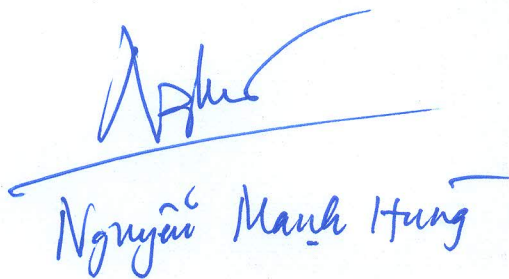 Nguyễn Mạnh Hùng